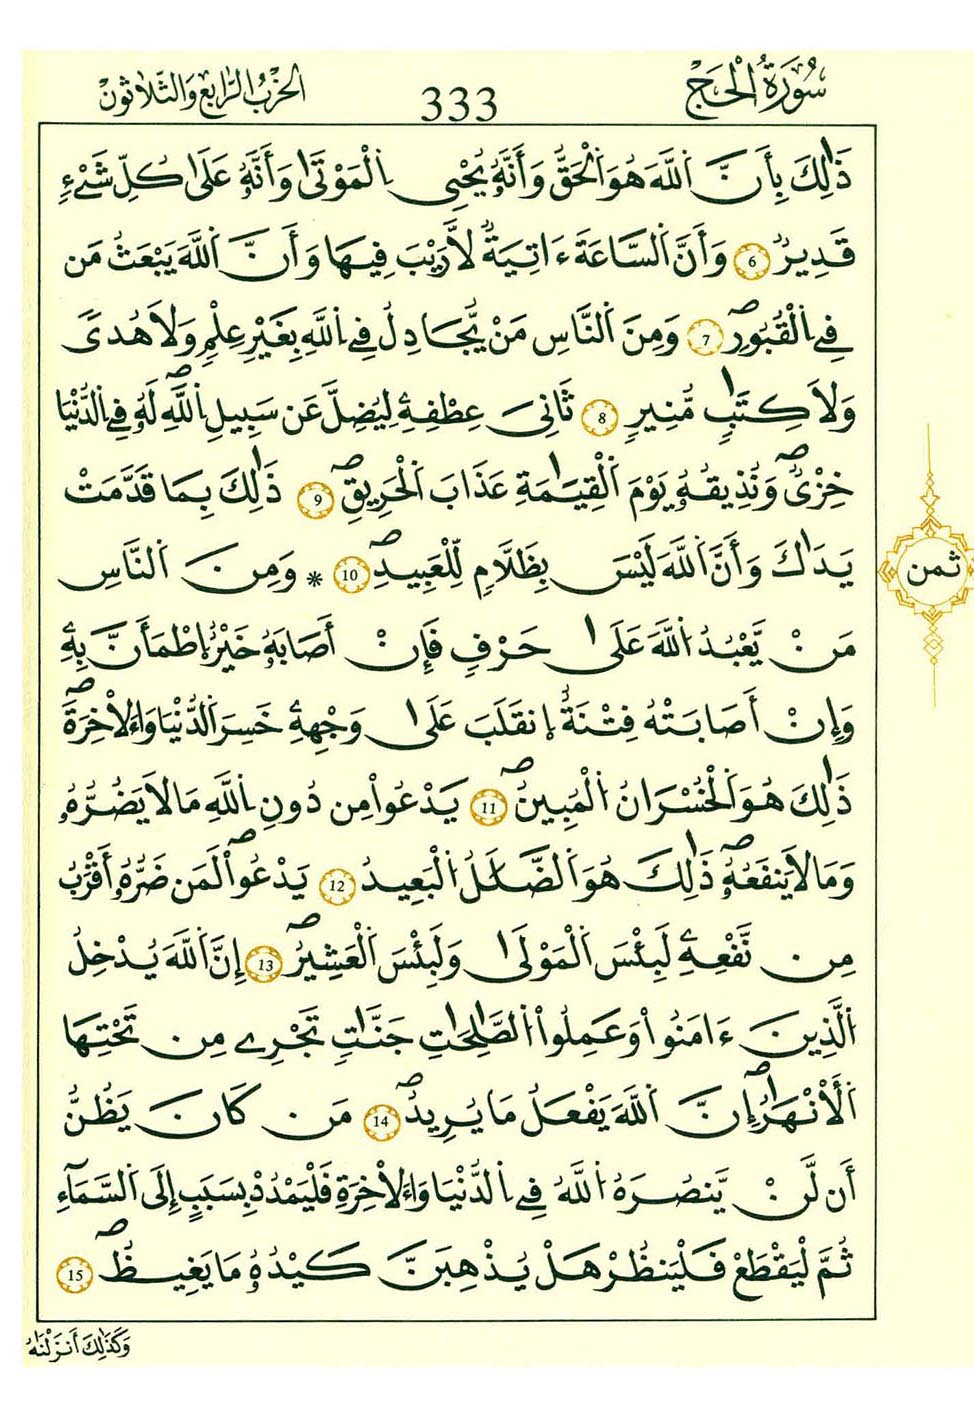 سُورَةُ الْحَجِّ
333
الحزب الرابع والثلاثون
ذَٰلِكَ بِأَنَّ اَللَّهَ هُوَ اَلْحَقُّ وَأَنَّهُۥ يُحْيِى اِلْمَوْتَىٰ وَأَنَّهُۥ عَلَىٰ كُلِّ شَےْءٖ
قَدِيرٞ 6 وَأَنَّ اَلسَّاعَةَ ءَاتِيَةٞ لَّا رَيْبَ فِيهَا وَأَنَّ اَللَّهَ يَبْعَثُ مَن
فِے اِلْقُبُورِۖ 7 وَمِنَ اَلنَّاسِ مَنْ يُّجَادِلُ فِے اِللَّهِ بِغَيْرِ عِلْمٖ وَلَا هُدىٗ
وَلَا كِتَٰبٖ مُّنِيرٖ 8 ثَانِىَ عِطْفِهِۦ لِيُضِلَّ عَن سَبِيلِ اِللَّهِۖ لَهُۥ فِے اِلدُّنْيَا
خِزْىٞۖ وَنُذِيقُهُۥ يَوْمَ اَلْقِيَٰمَةِ عَذَابَ اَلْحَرِيقِۖ 9 ذَٰلِكَ بِمَا قَدَّمَتْ
يَدَٰكَ وَأَنَّ اَللَّهَ لَيْسَ بِظَلَّٰمٖ لِّلْعَبِيدِۖ 10 * وَمِنَ اَلنَّاسِ
ثمن
مَنْ يَّعْبُدُ اُللَّهَ عَلَىٰ حَرْفٖ فَإِنْ أَصَابَهُۥ خَيْرٌ اِطْمَأَنَّ بِهِۦ
وَإِنْ أَصَابَتْهُ فِتْنَةٌ اِنقَلَبَ عَلَىٰ وَجْهِهِۦ خَسِرَ اَلدُّنْيَا وَالَاخِرَةَۖ
ذَٰلِكَ هُوَ اَلْخُسْرَانُ اُلْمُبِينُۖ 11 يَدْعُواْ مِن دُونِ اِللَّهِ مَا لَا يَضُرُّهُۥ
وَمَا لَا يَنفَعُهُۥۖ ذَٰلِكَ هُوَ اَلضَّلَٰلُ اُلْبَعِيدُۖ 12 يَدْعُواْ لَمَن ضَرُّهُۥ أَقْرَبُ
مِن نَّفْعِهِۦ لَبِئْسَ اَلْمَوْلَىٰ وَلَبِئْسَ اَلْعَشِيرُۖ 13 إِنَّ اَللَّهَ يُدْخِلُ
اُلَّذِينَ ءَامَنُواْ وَعَمِلُواْ اُلصَّٰلِحَٰتِ جَنَّٰتٖ تَجْرِے مِن تَحْتِهَا
اَلْأَنْهَٰرُۖ إِنَّ اَللَّهَ يَفْعَلُ مَا يُرِيدُۖ 14 مَن كَانَ يَظُنُّ
أَن لَّنْ يَّنصُرَهُ اُللَّهُ فِے اِلدُّنْيَا وَالَاخِرَةِ فَلْيَمْدُدْ بِسَبَبٍ إِلَى اَلسَّمَآءِ
ثُمَّ لْيَقْطَعْ فَلْيَنظُرْ هَلْ يُذْهِبَنَّ كَيْدُهُۥ مَا يَغِيظُۖ 15
وَكَذَٰلِكَ أَنزَلْنَٰهُ